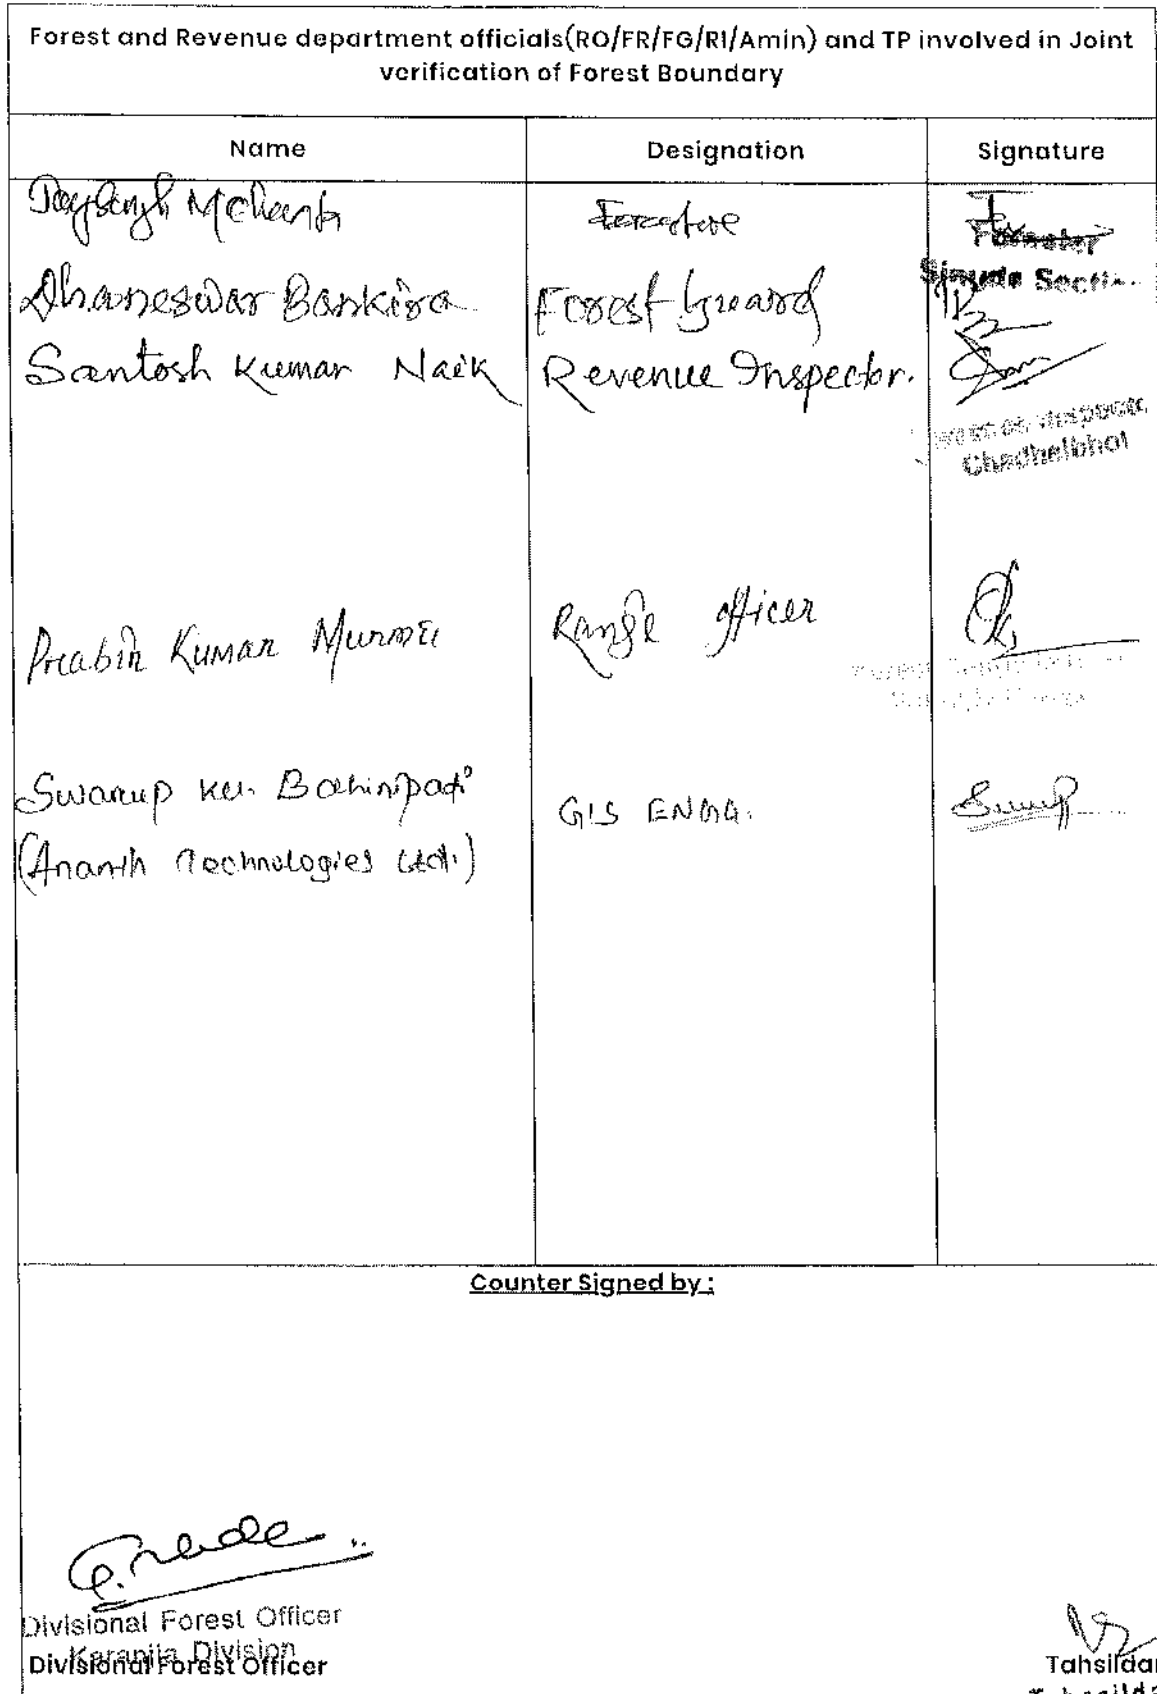 Forest and Revenue department officials(RO/FR/FG/RI/Amin) and TP involved in Joint
verification of Forest Boundary
Name Designation Signature
Forester
Section
Dhaneswar Bankira Forest Guard
Santosh Kumar Naik Revenue Inspector.
Chadheibhol
Prabin Kumar Murmu Range Officer
Swarup Ku. Bahinipati GIS ENGG.
(Ananth Technologies Ltd.)
Counter Signed by :
Divisional Forest Officer
Karanjia Division
Divisional Forest Officer
Tahsildar